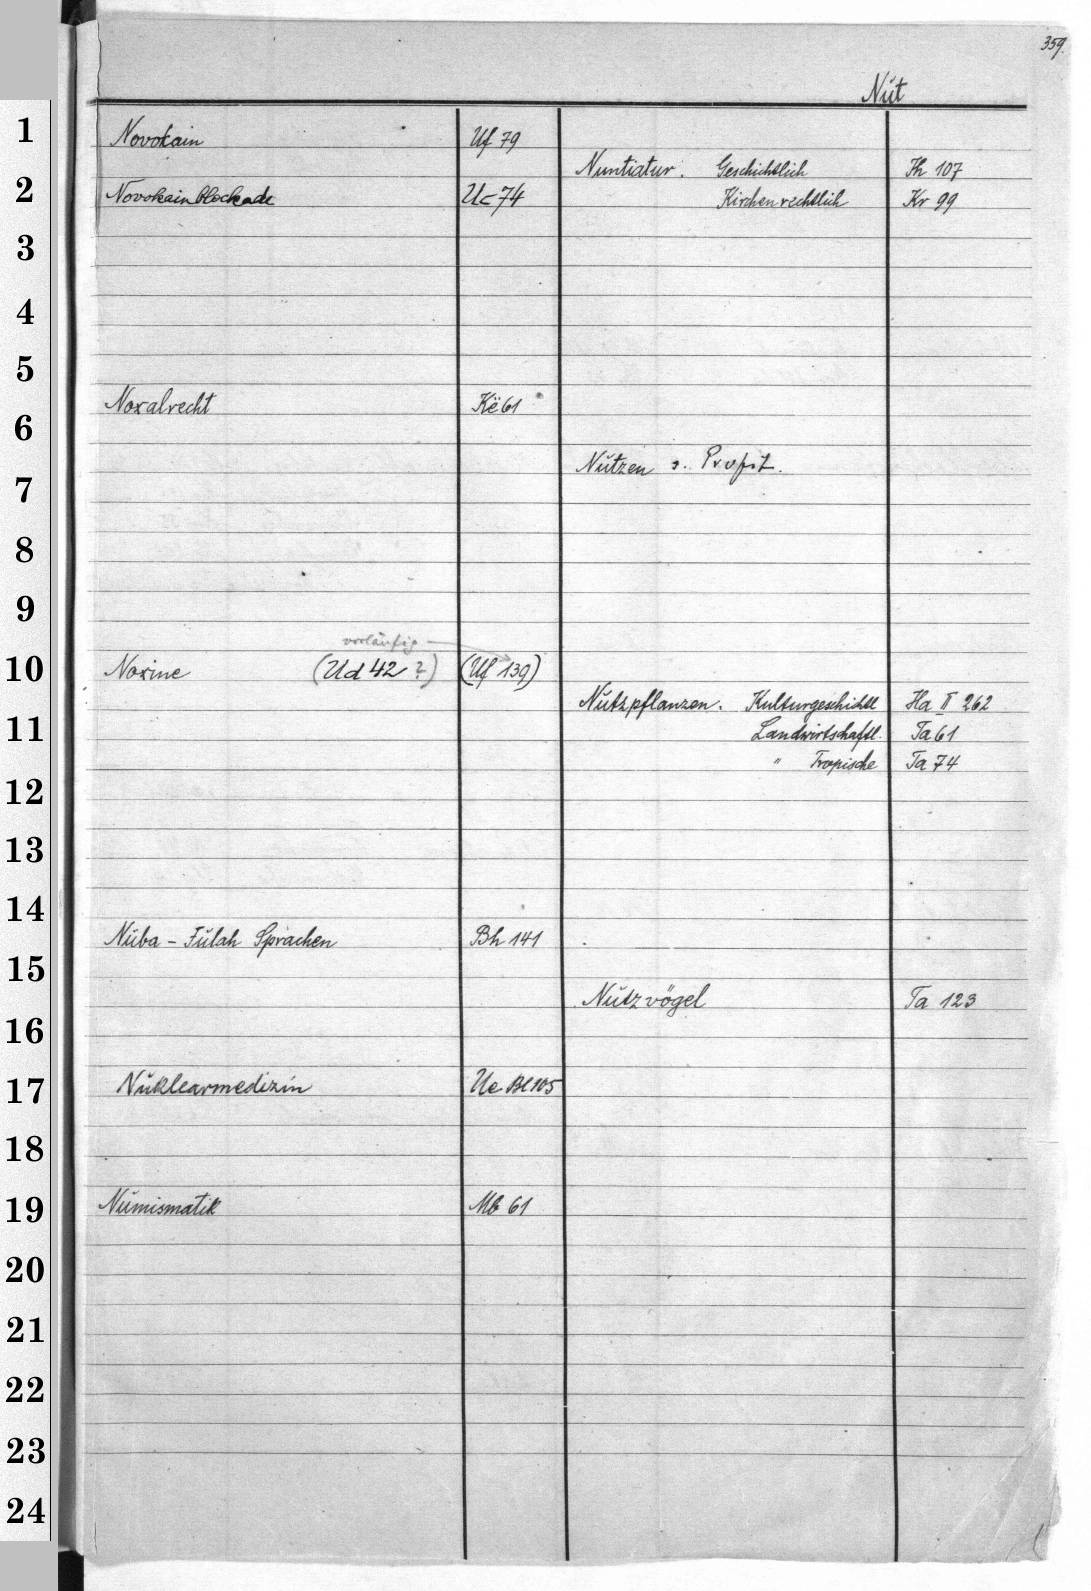 359.
Nut
1
Novokain Uf 79
Nuntiatur. Geschichtlich Kh 107
2
Novokainblockade Uc 74
Kirchenrechtlich Kr 99
3
4
5
Noxalrecht Kë 61
6
Nutzen s. Profit.
7
8
9
vorläufig
10
Noxine (Ud 42 ?) (Uf 139)
Nutzpflanzen. Kulturgeschichtl Ha II 262
11
Landwirtschaftl. Ta 61
" Tropische Ta 74
12
13
14
Nuba - Fulah Sprachen Bh 141
15
Nutzvögel Ta 123
16
17
Nuklearmedizin Ue Bl 105
18
19
Numismatik Mb 61
20
21
22
23
24